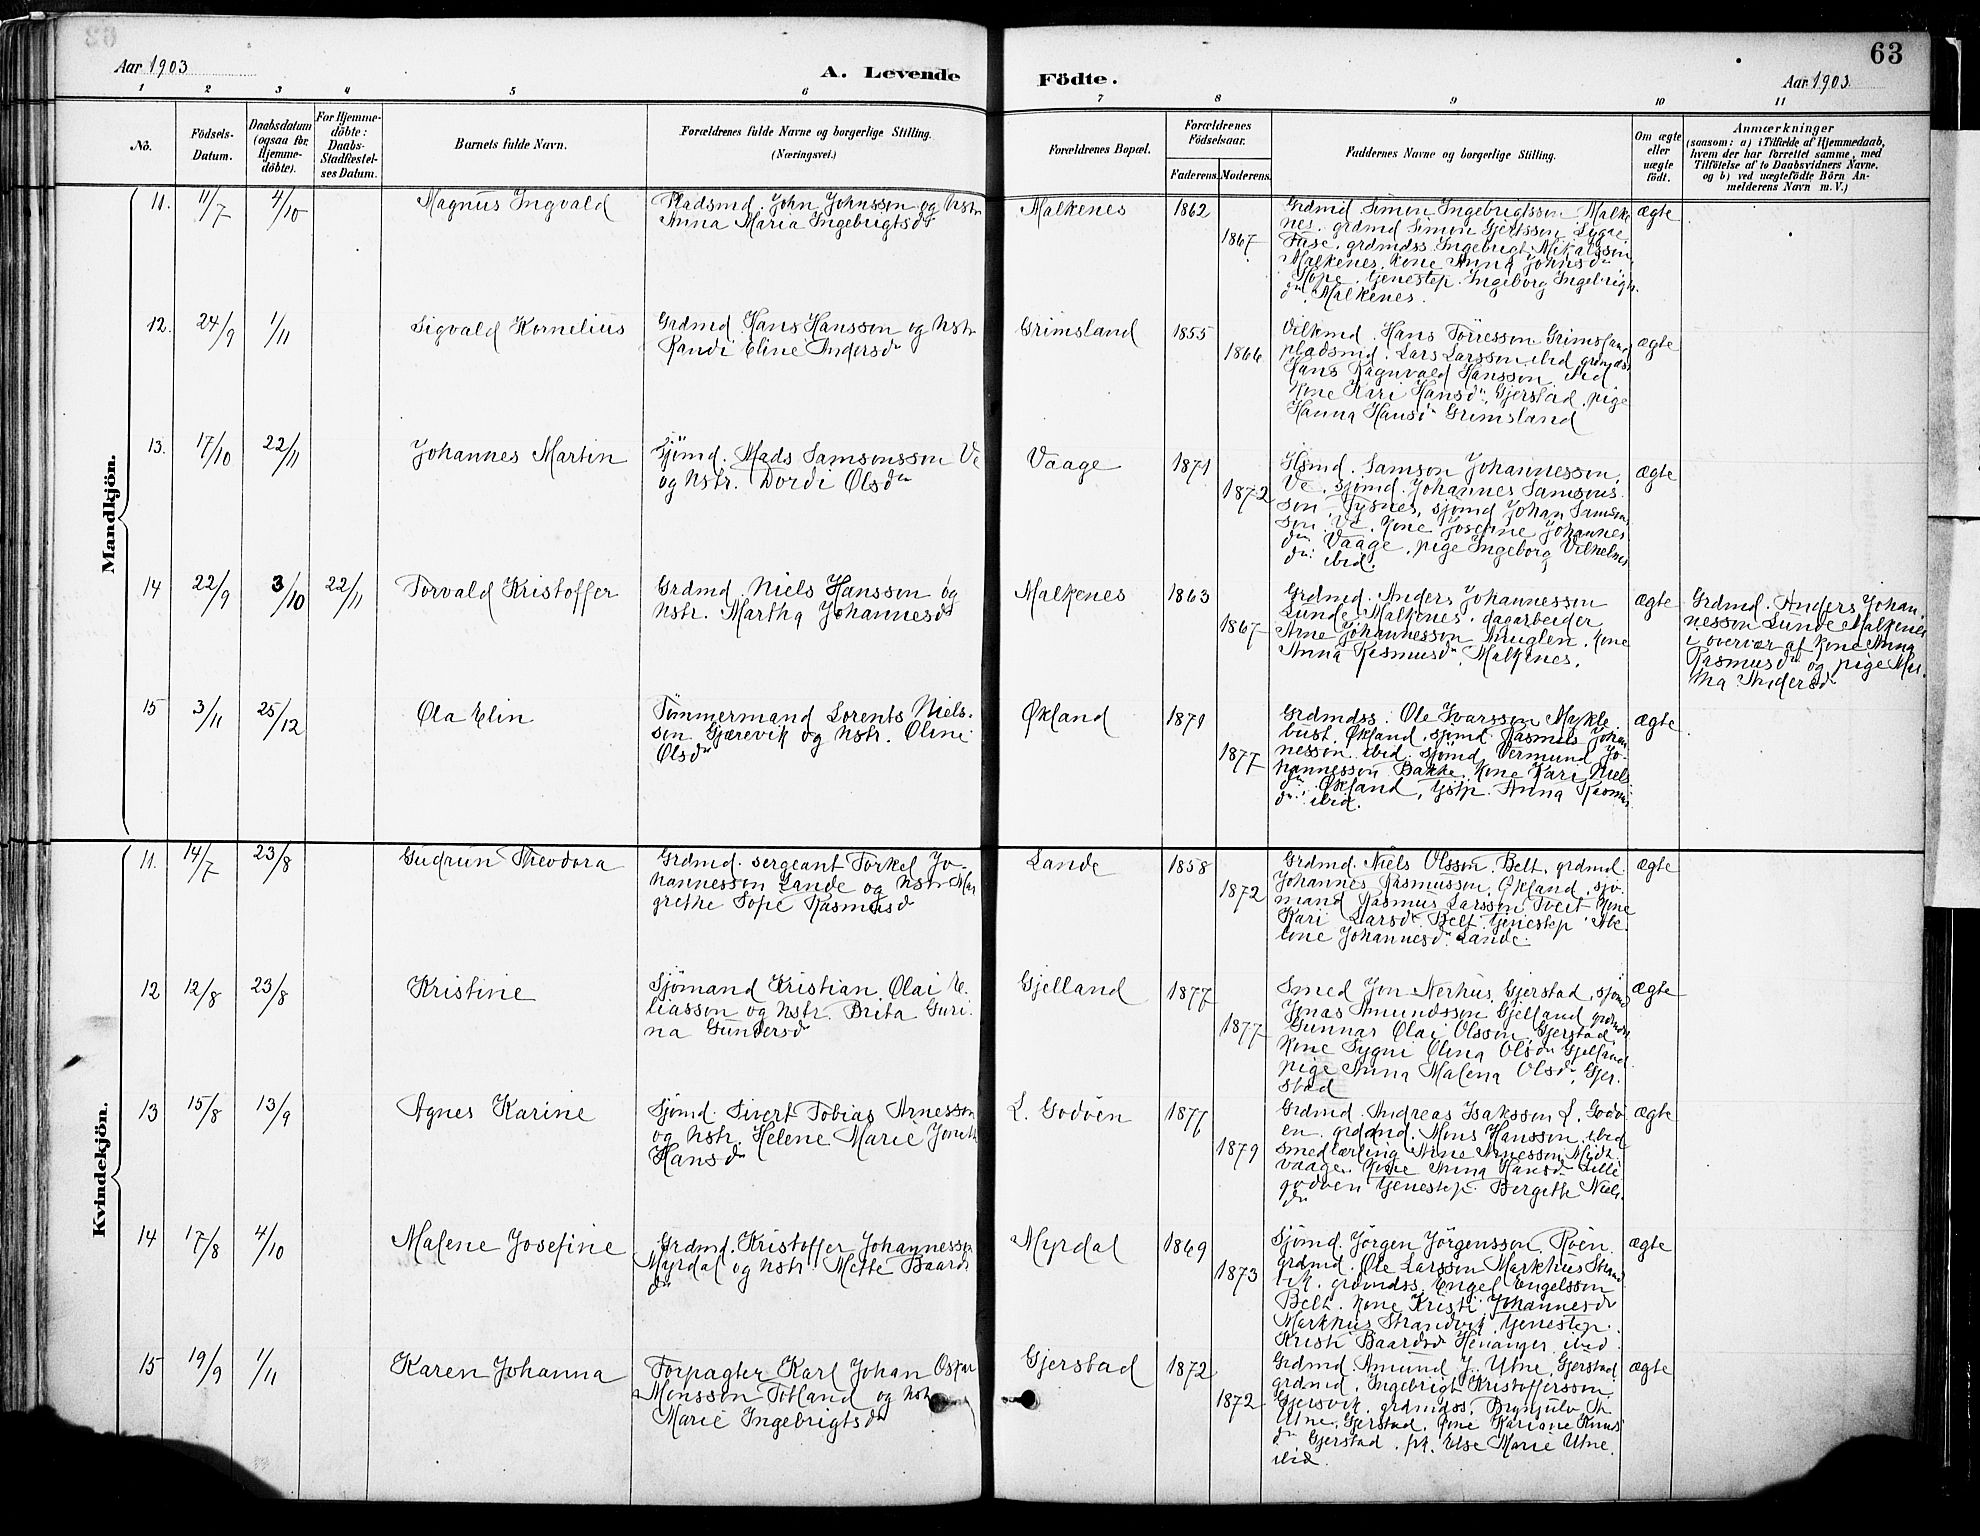 63
Aar 1903
A. Levende
Födte.
Aar 1903
1 2 3 4 5 6 7 8 9 10 11
Nö.
Födsels-
Datum.
Daabsdatum
(ogsaa for
Hjemme-
döbte).
For Hjemme-
döbte:
Daabs-
Stadfæstel-
ses Datum.
Barnets fulde Navn.
Forældrenes fulde Navne og borgerlige Stilling.
(Næringsvei.)
Forældrenes Bopæl.
Forældrenes
Födselsaar.
Faderens. Moderens.
Faddernes Navne og borgerlige Stilling.
Om ægte
eller
uægte
födt.
Anmærkninger
(saasom: a) i Tilfælde af Hjemmedaab,
hvem der har forrettet samme, med
Tilföielse af to Daabsvidners Navne,
og b) ved uægtefödte Börn An-
melderens Navn m. V.)
Mandkjön.
11. 11/7 4/10
Magnus Ingvald
Pladsmd. John Johnsson og hstr
Anna Maria Ingebrigtsdr
Malkenes
1862
1867
Grdmd Simon Ingebrigtsson Malke
nes. grdmd Simon Gjertsson Lygre
Fuse. grdmdss Ingebrigt Mikalsson
Malkenes, kone Anna Johnsdr
Hope. tjenestep. Ingeborg Ingebrigts
dr. Malkenes.
ægte
12. 24/9 1/11
Sigvald Kornelius
Grdmd. Hans Hansson og hstr
Randi Eline Andersdr
Grimsland
1855
1866
Vilkmd. Hans Törresson Grimsland
pladsmd. Lars Larsson ibid grdmdss
Hans Ragnvald Hansson ibid
kone Kari Hansdr. Gjerstad, pige
Hanna Hansdr Grimsland
ægte
13. 17/10 22/11
Johannes Martin
Sjömd. Mads Samsonsson Ve
og hstr. Dordi Olsdr
Vaage
1871
1872
Hsmd. Samson Johannesson,
Ve, sjömd. Johannes Samsons
son, Tysnes, sjömd Johan Samson
son. Ve. kone Josefine Johannes
dr Vaage, pige Ingeborg Vilhelms
dr. ibid.
ægte
14 22/9 3/10 22/11
Torvald Kristoffer
Grdmd. Niels Hansson og
hstr. Martha Johannesdr
Malkenes
1863
1867
Grdmd. Anders Johannesson
Lunde, Malkenes. dagarbeider
Arne Johannesson Aruglen. kone
Anna Rasmusdr. Malkenes.
ægte
Grdmd. Anders Johan-
nesson Lunde Malkenes
i overvær af kone Anna
Rasmusdr og pige Mar-
tha Andersdr
15 3/11 25/12
Ola Elin
Tömmermand Lorents Niels-
son Gjærevik og hstr. Oline
Olsdr
Økland
1871
1877
Grdmdss. Ole Ivarsson Mykle
bust, Økland, sjömd. Rasmus Johan
nesson ibid. sjömd Vermund Jo-
hannesson Bakke, kone Kari Niels
dr, Økland, tjstp. Anna Rasmus
dr ibid.
ægte
Kvindekjön.
11. 14/7 23/8
Gudrun Theodora
Grdmd. sergeant Torkel Jo-
hannesson Lande og hstr Mar
grethe Sope Rasmusdr
Lande
1858
1872
Grdmd. Niels Olsson. Belt, grdmd.
Johannes Rasmusson, Økland, sjö-
mand Rasmus Larsson Tveit kone
Kari Larsdr. Belt, tjenestep. Abe-
lone Johannesdr. Lande.
ægte
12 12/8 23/8
Kristine
Sjömand Kristian Olai E-
liasson og hstr. Brita Guri-
na Gundersdr
Gjelland
1877
1877
Smed Jon Nerhus, Gjerstad, sjömd
Jonas Amundsson Gjelland grdmdss
Gunnar Olai Olsson, Gjerstad,
kone Sygni Olina Olsdr Gjelland
pige Anna Malena Olsdr, Gjer-
stad
ægte
13 15/8 13/9
Agnes Karine
Sjömd. Sivert Tobias Arnesson
og hstr. Helene Marie Joneth
Hansdr
L. Godöen
1877
1879
Grdmd. Andreas Isaksson L. Godö
en. grdmd. Mons Hansson, ibid
smedlærling Arne Arnesson Midt-
vaage, kone Anna Hansdr. Lille
godöen tjenestep. Bergithe Niels
dr
ægte
14 17/8 4/10
Malene Josefine
Grdmd. Kristoffer Johannesson
Myrdal og hstr. Mette Baards
dr
Myrdal
1869
1873
Sjömd. Jörgen Jörgensson, Röen
grdmd. Ole Larsson Markhus Strand
vik. grdmdss. Engel Engelsson
Belt. kone Kristi Johannesdr
Markhus Strandvik, tjenestep.
Kristi Baardsdr Henanger ibid
ægte
15 19/9 1/11
Karen Johanna
Forpagter Karl Johan Oskar
Monsson Totland og hstr
Marie Ingebrigtsdr
Gjerstad
1872
1872
Grdmd. Amund J. Utne, Gjerstad
grdmd. Ingebrigt Kristoffersson
Gjersvik, grdmdss. Brynjulv
Utne, Gjerstad, kone Kariane Knuds
dr Gjerstad. frk. Else Marie Utne.
ibid.
ægte